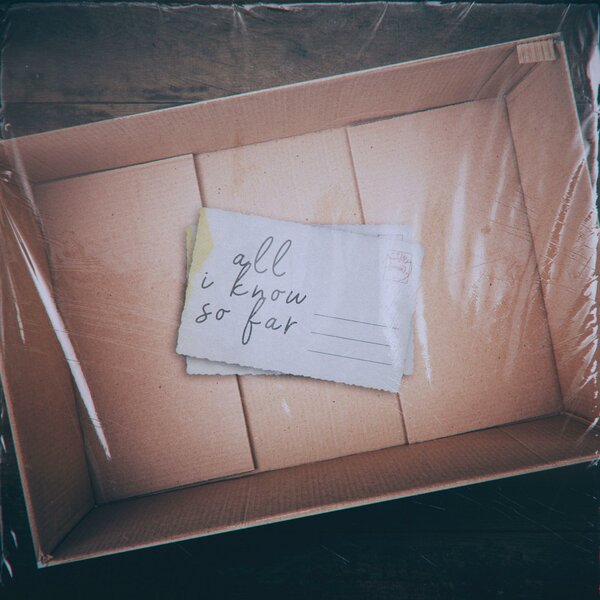 all
i know
so far